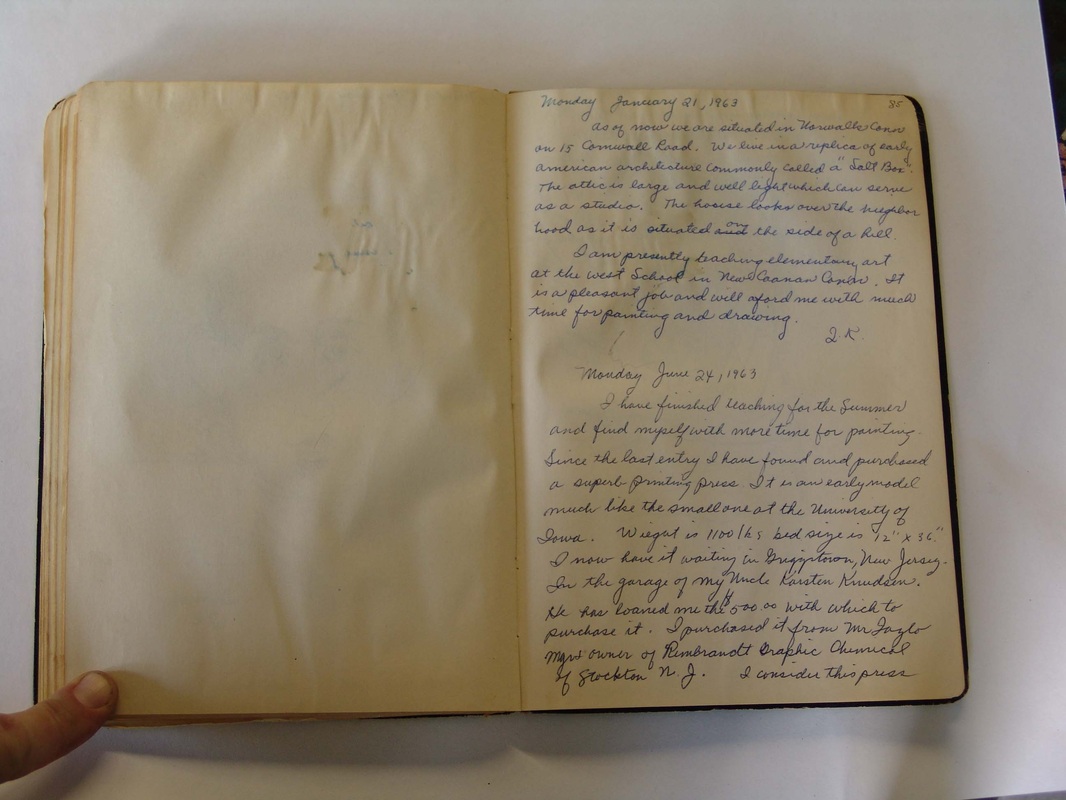 85
Monday January 21, 1963
as of now we are situated in Norwalk Conn
on 15 Cornwall Road. We live in a replica of early
american architecture commonly called a "Salt Box".
The attic is large and well light which can serve
as a studio. The house looks over the neighbor
hood as it is situated on the side of a hill.
I am presently teaching elementary art
at the west School in New Caanan Conn. It
is a pleasant job and will aford me with much
time for painting and drawing.
Monday June 24, 1963
I have finished teaching for the Summer
and find myself with more time for painting.
Since the last entry I have found and purchased
a superb printing press. It is an early model
much like the small one at the University of
Iowa. Wieght is 1100 lbs bed size is 12" x 36."
I now have it waiting in Griggstown, New Jersey.
In the garage of my Uncle Karsten Knudsen.
He has loaned me the $500.00 with which to
purchase it. I purchased it from Mr
owner of Rembrandt Graphic Chemical
of Stockton N. J. I consider this press